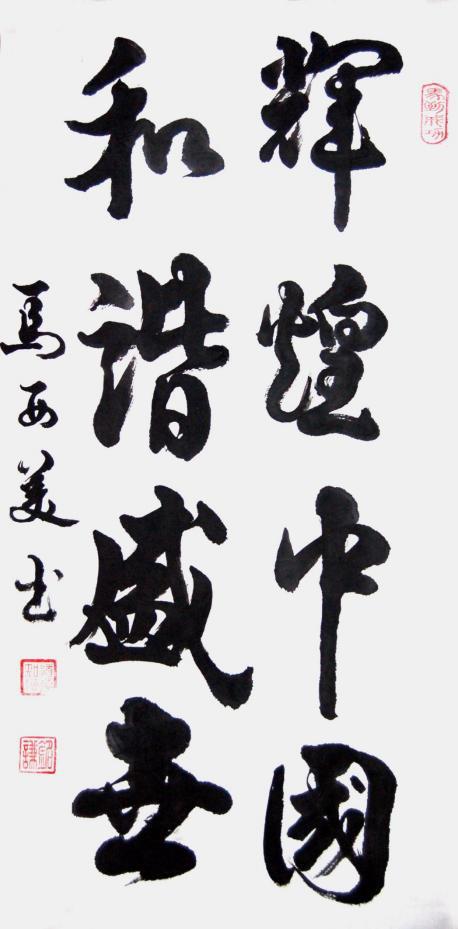 輝煌中國
和諧盛世
馬西美书